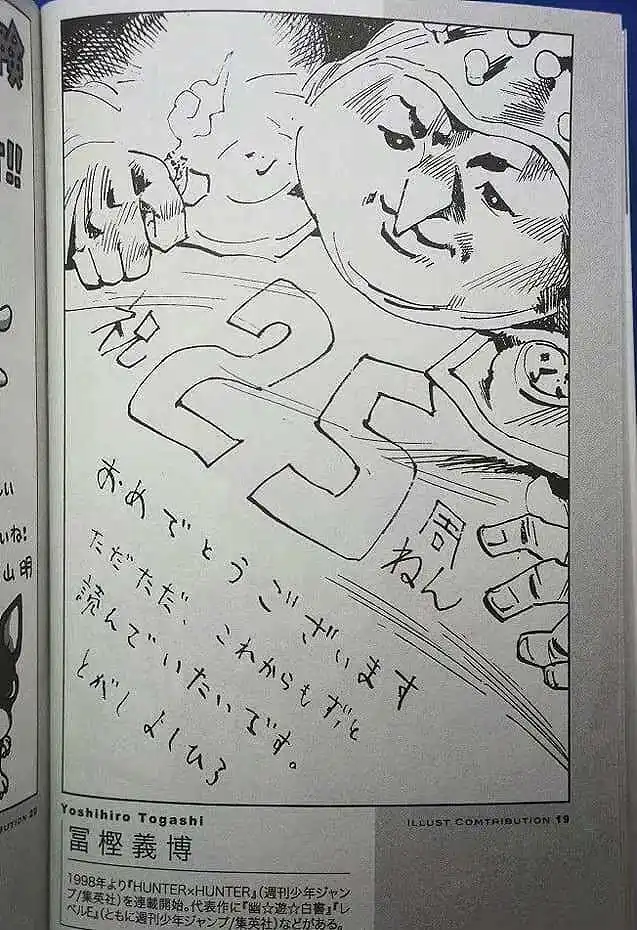 祝
25
周ねん
おめでとうございます
ただただ、これからもずっと
読んでいたいです。
とがしよしひろ
Yoshihiro Togashi
冨樫義博
1998年より『HUNTER×HUNTER』(週刊少年ジャン
プ/集英社)を連載開始。代表作に『幽☆遊☆白書』『レ
ベルE』(ともに週刊少年ジャンプ/集英社)などがある。
ILLUST COMTRIBUTION 19
!!
しい
いね!
山 明
BUTION 20